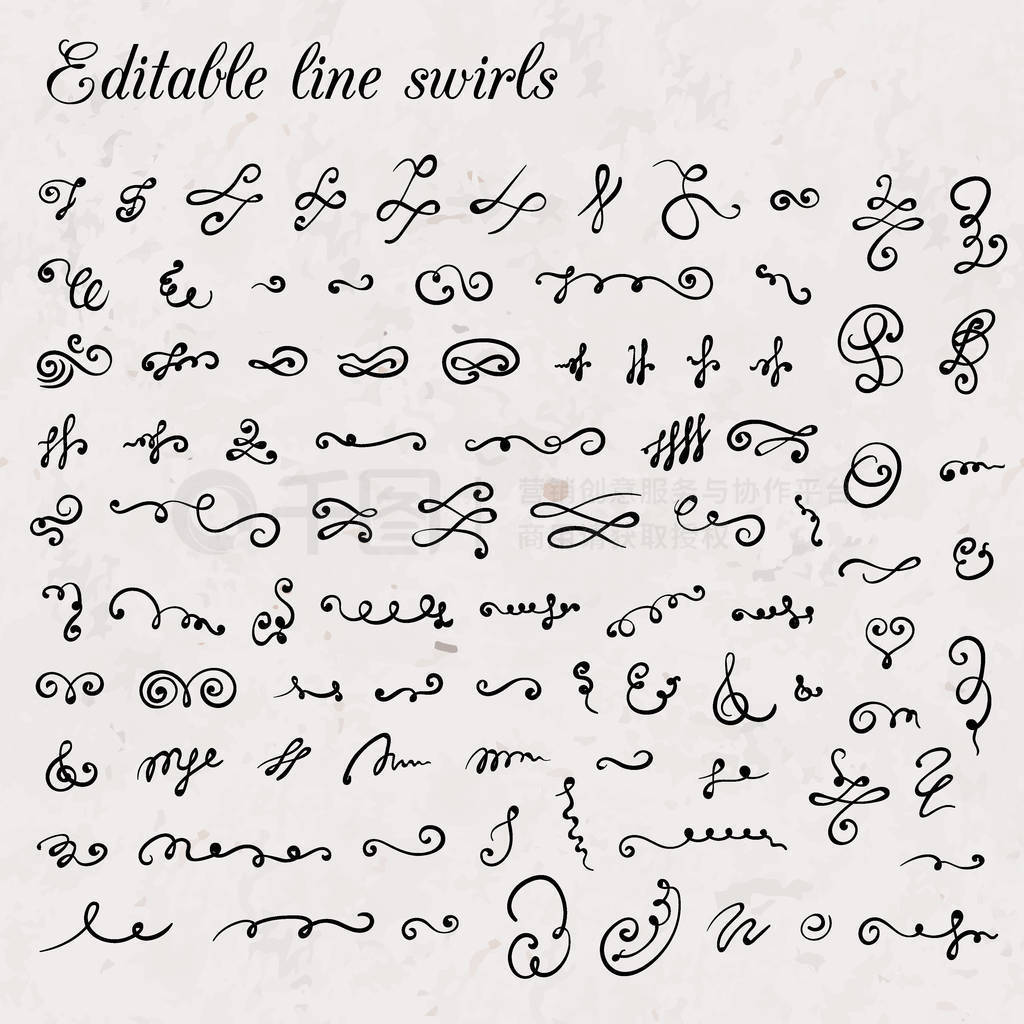 Editable line swirls
千图
营销创意服务与协作平台
商用请获取授权